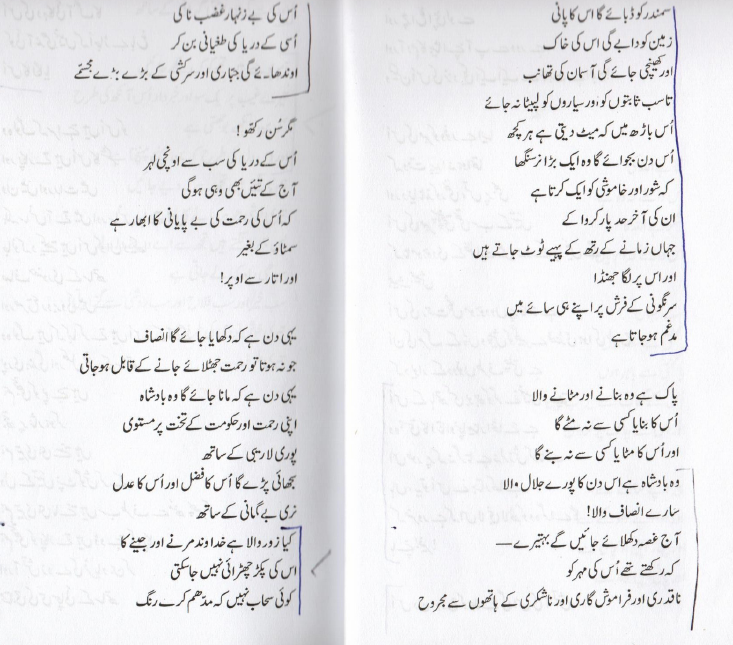 سمندر کو ڈبائے گا اس کا پانی
زمین کو دابے گی اس کی خاک
اور کھینچی جائے گی آسمان کی تھانب
تاسب ثابتوں کو اور سیاروں کو لپیٹا نہ جائے
اُس باڑھ میں کہ میٹ دیتی ہے ہر کچھ
اُس دن بجوائے گا وہ ایک بڑا نرسنگھا
کہ شور اور خاموشی کو ایک کرتا ہے
ان کی آخر حد پار کروا کے
جہاں زمانے کے رتھ کے پہیے ٹوٹ جاتے ہیں
اور اس پر لگا جھنڈا
سرنگونی کے فرش پر اپنے ہی سائے میں
مدغم ہو جاتا ہے
پاک ہے وہ بنانے اور مٹانے والا
اُس کا بنایا کسی سے نہ مٹے گا
اور اُس کا مٹایا کسی سے نہ بنے گا
وہ بادشاہ ہے اس دن کا پورے جلال والا
سارے انصاف والا!
آج غصہ دکھلائے جائیں گے بہتیرے—
کہ رکھتے تھے اُس کی مہر کو
ناقدری اور فراموش گاری اور ناشکری کے ہاتھوں سے مجروح
اُس کی بے زنہار غضب ناکی
اُسی کے دریا کی طغیانی بن کر
اوندھائے گی جبّاری اور سرکشی کے بڑے بڑے مجسمے
مگر سُن رکھو!
اُس کے دریا کی سب سے اونچی لہر
آج کے تئیں بھی وہی ہوگی
کہ اُس کی رحمت کی بے پایانی کا ابھار ہے
سمٹاؤ کے بغیر
اور اتار سے اوپر!
یہی دن ہے کہ دکھایا جائے گا انصاف
جو نہ ہوتا تو رحمت جھٹلائے جانے کے قابل ہو جاتی
یہی دن ہے کہ مانا جائے گا وہ بادشاہ
اپنی رحمت اور حکومت کے تخت پر مستوی
پوری لاریبی کے ساتھ
بجھائی پڑے گا اُس کا فضل اور اُس کا عدل
نری بے گمانی کے ساتھ
کیا زور والا ہے خداوند مرنے اور جینے کا
اس کی پکڑ چھڑائی نہیں جا سکتی
کوئی سحاب نہیں کہ مدّھم کرے رنگ